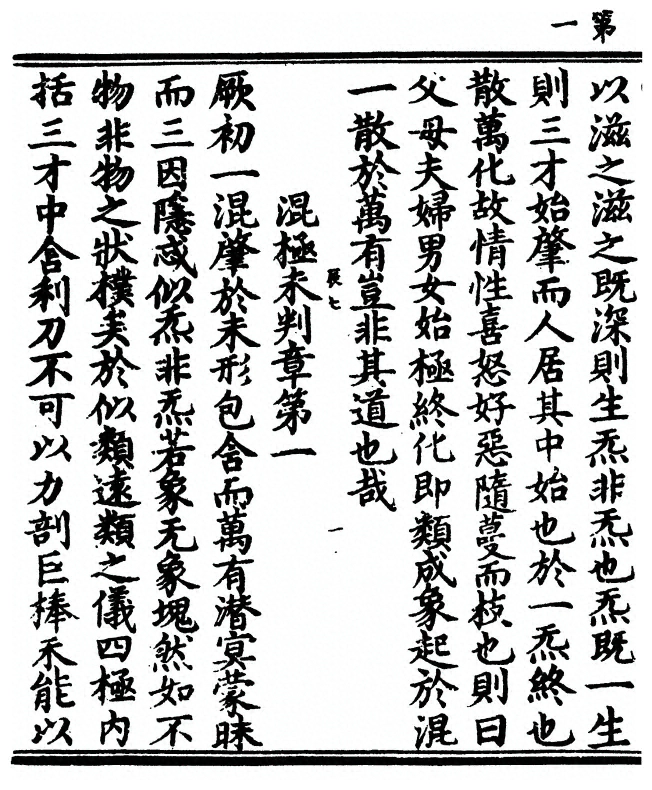 第一
以滋之滋之既深則生炁非炁也炁既一生
則三才始肇而人居其中始也於一炁終也
散萬化故情性喜怒好惡隨蔓而枝也則曰
父母夫婦男女始極終化即類成象起於混
一散於萬有豈非其道也哉
辰七
一
混極未判章第一
厥初一混肇於未形包含而萬有潛寞蒙昧
而三因隱惑似炁非炁若象无象塊然如不
物非物之狀樸矣於似類遠類之儀四極內
括三才中含利刀不可以力剖巨棒禾能以